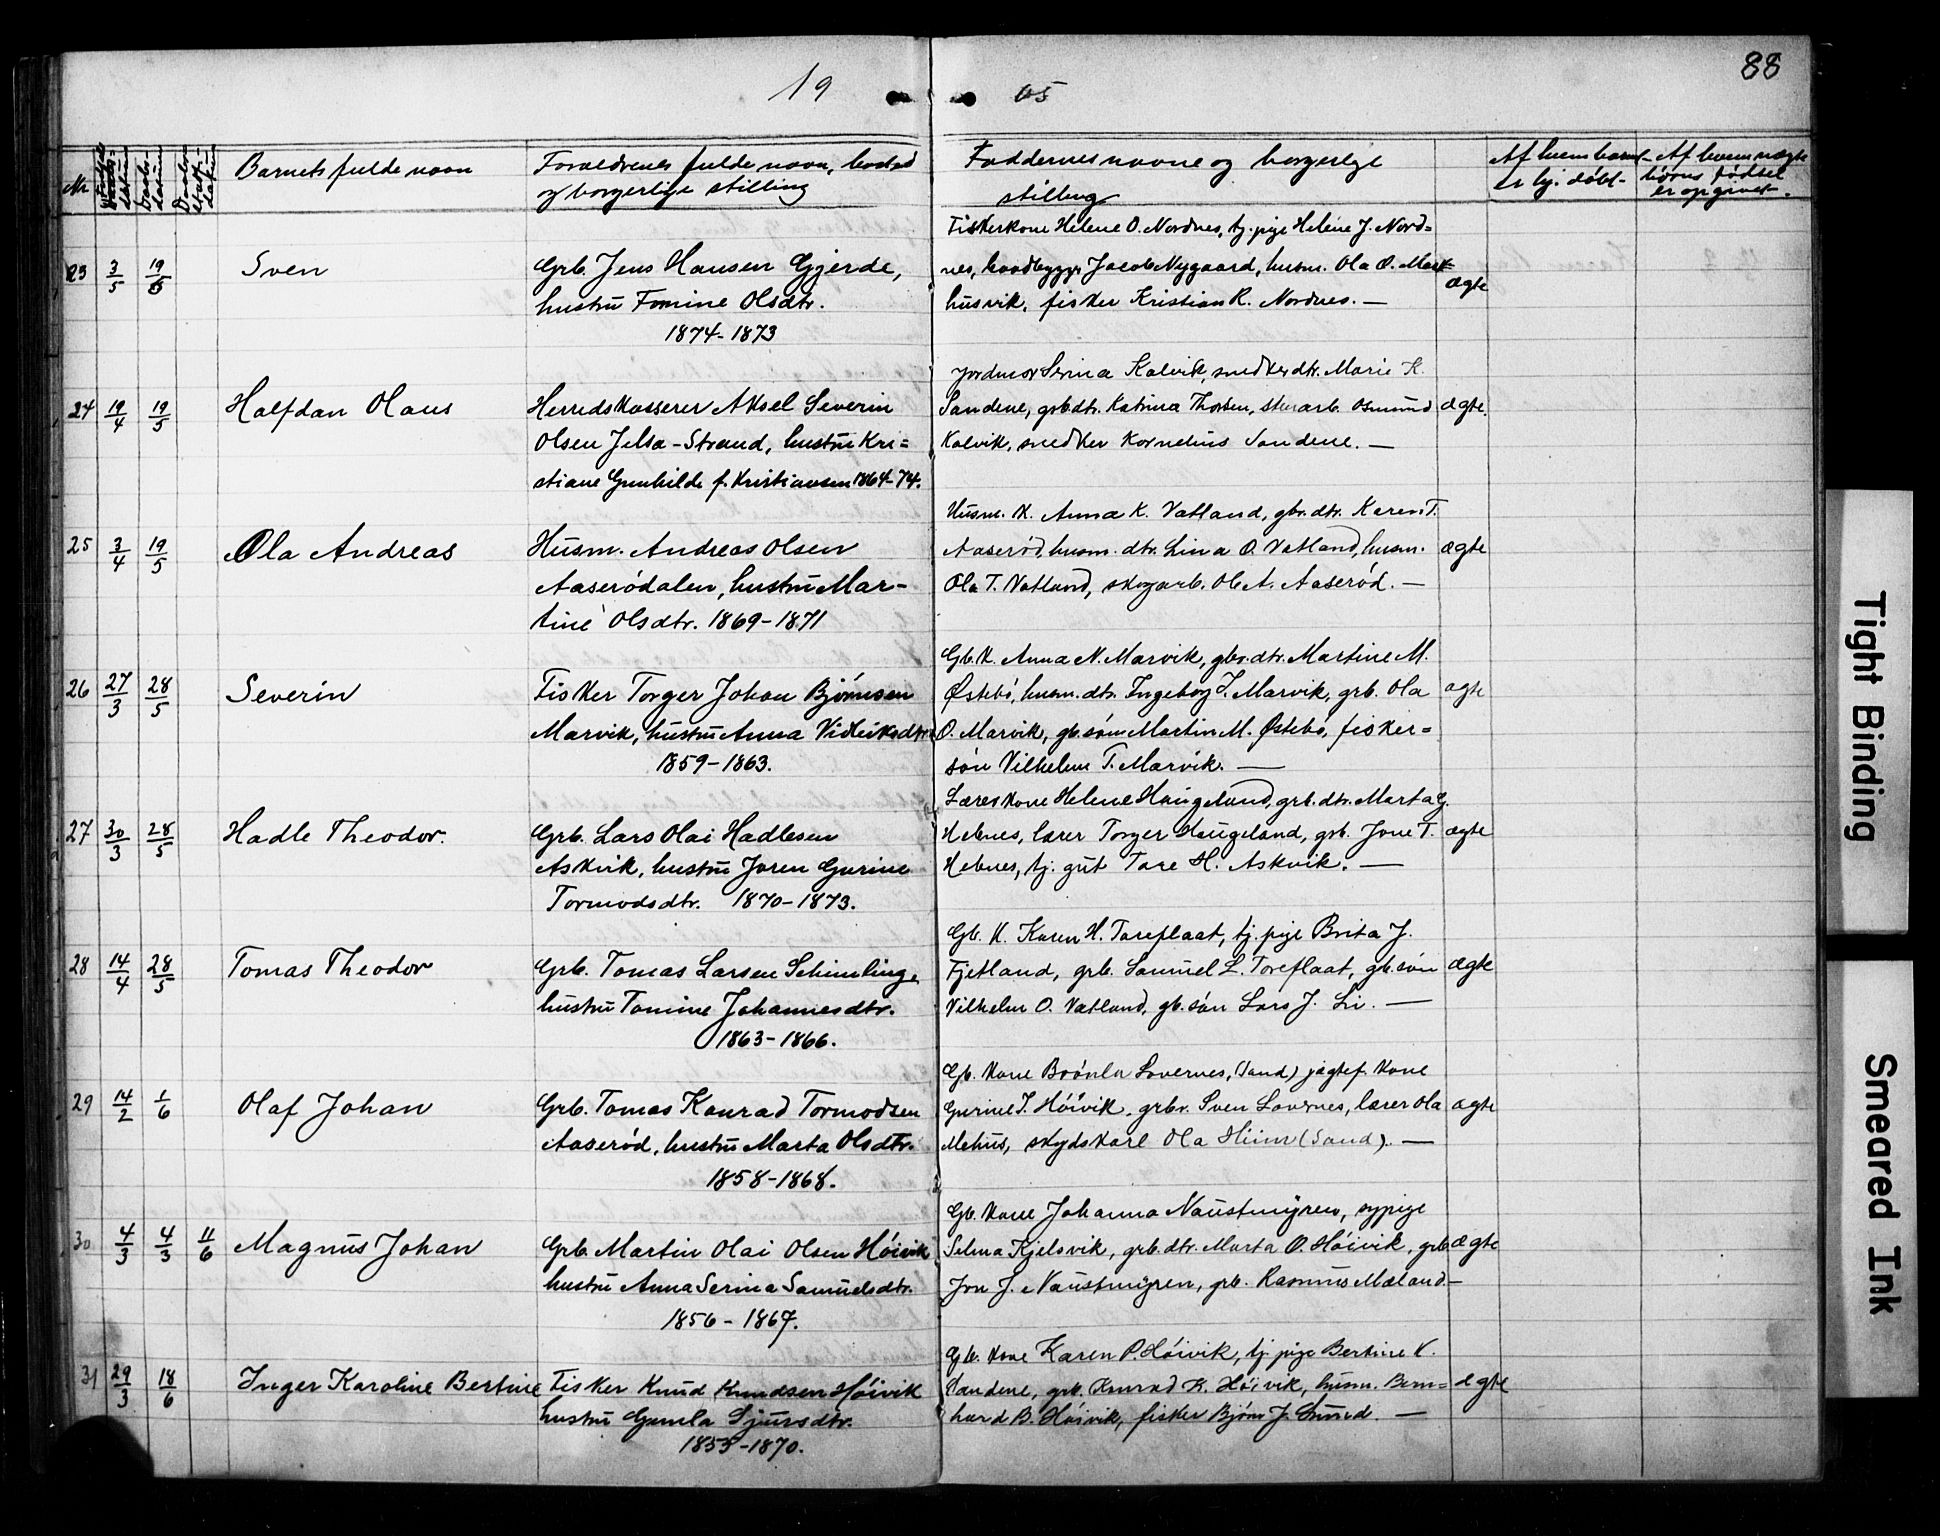 19 05
88
Nr
Barnets fulde navn
Forældrenes fulde navn, bosted
og borgerlige stilling
Faddernes navne og borgerlige
stilling
Af hvem barnet
er hj. døbt.
Af hvem uægte
børns fødsel
er opgivet.
23 3/5 19/5 Sven
Grb. Jens Hansen Gjerde,
hustru Tomine Olsdtr.
1874-1873
Fiskerkone Helene O. Nordnes, tj. pige Helene J. Nord=
nes, baadbygger Jacob Nygaard, husm. Ola O. Mark=
husvik, fisker Kristian R. Nordnes. —
ægte
24 19/4 19/5 Halfdan Olaus
Herredskasserer Aksel Severin
Olsen Jelsa-Strand, hustru Kri=
stiane Gunhilde f. Kristiansen 1864-74.
Jordmor Serina Kalvik, snedkerdtr. Marie K.
Sandene, grb.dtr. Katrina Thorsen, stenarb. Osmund
Kalvik, snedker Kornelius Sandene. —
ægte.
25 3/4 19/5 Ola Andreas
Husm. Andreas Olsen
Aaserødalen, hustru Mar-
tine Olsdtr. 1869-1871
Husm. k. Anna K. Vatland, gbr.dtr. Karen T.
Aaserød, husm. dtr. Lina O. Vatland, husm.
Ola T. Vatland, skogarb. Ole A. Aaserød. —
ægte
26 27/3 28/5 Severin
Fisker Torger Johan Bjørnsen
Marvik, hustru Anna Vidleiksdtr.
1859-1863.
Gb. k. Anna N. Marvik, gbr.dtr. Martine M.
Østebø, husm. dtr. Ingeborg T. Marvik, grb. Ola
O. Marvik, gb.søn Martin M. Østebø, fisker=
søn Vilhelm T. Marvik. —
ægte
27 30/3 28/5 Hadle Theodor.
Grb. Lars Olai Hadlesen
Askvik, hustru Joren Gurine
Tormodsdtr. 1870-1873.
Lærerkone Helene Haugeland, grb. dtr. Marta G.
Hebnes, lærer Torger Haugeland, grb. Jone T.
Hebnes, tj. gut Tore H. Askvik. —
ægte
28 14/4 28/5 Tomas Theodor
Grb. Tomas Larsen Schimling,
hustru Tomine Johannesdtr.
1863-1866.
Gb. k. Karen H. Toreflaat, tj. pige Brita J.
Fjetland, grb. Samuel L. Toreflaat, gb.søn
Vilhelm O. Vatland, gb. søn Lars J. Li. —
ægte
29 14/2 1/6 Olaf Johan
Grb. Tomas Konrad Tormodsen
Aaserød, hustru Marta Olsdtr.
1858-1868.
Gb. kone Brønla Lovernes, (Sand) jægtef. kone
Gurine T. Høivik, grbr. Sven Lovernes, lærer Ola
Mehus, skydskarl Ola Hiim (Sand). —
ægte
30 4/3 4/3 11/6 Magnus Johan
Grb. Martin Olai Olsen Høivik
hustru Anna Serina Samuelsdtr.
1856-1867.
Gb. kone Johanna Naustmyren, sypige
Selma Kjelsvik, grb.dtr. Marta O. Høivik, grb.
Jon J. Naustmyren, grb. Rasmus Mæland. —
ægte
31 29/3 18/6 Inger Karoline Bertine
Fisker Knud Knudsen Høivik
hustru Gunla Sjursdtr.
1853-1870.
Gb. kone Karen P. Høivik, tj. pige Bertine K.
Sandene, grb. Konrad K. Høivik, husm. Bern=
hard B. Høivik, fisker Bjørn J. —
ægte
Tight Binding
Smeared Ink